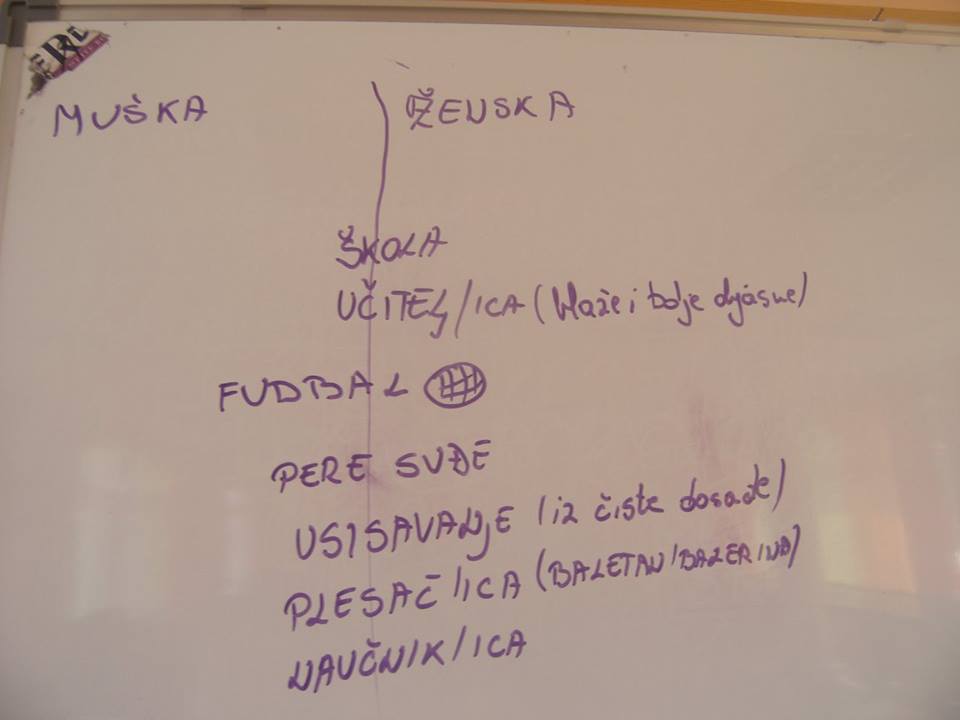 MUŠKA
ŽENSKA
ŠKOLA
UČITELJ/ICA (blaže i bolje
FUDBAL
PERE SUĐE
USISAVANJE (iz čiste dosade)
PLESAČ/ICA (BALETAN/BALERINA)
NAUČNIK/ICA